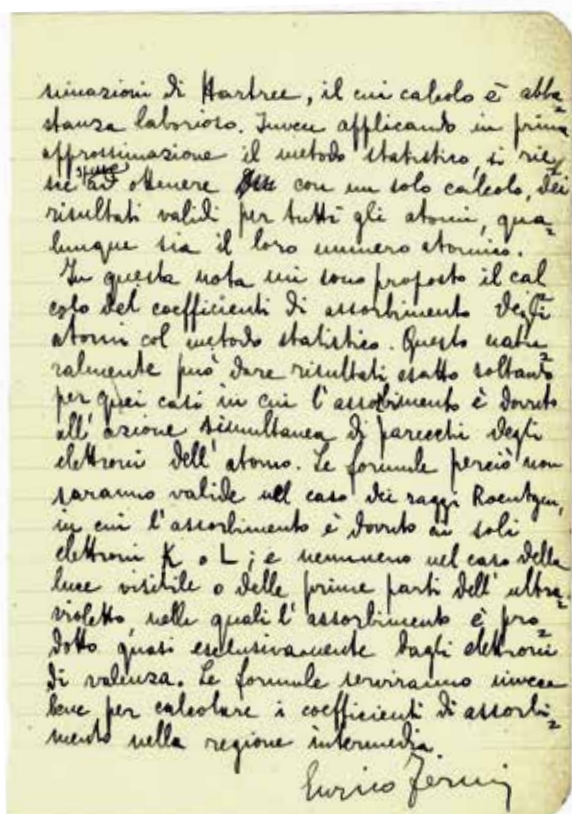 simazioni di Hartree, il cui calcolo è abba=
stanza laborioso. Invece applicando in prima
approssimazione il metodo statistico, si rie=
sce ad ottenere con un solo calcolo, dei
risultati validi per tutti gli atomi, qua=
lunque sia il loro numero atomico.
In questa nota mi sono proposto il cal
colo del coefficienti di assorbimento degli
atomi col metodo statistico. Questo natu=
ralmente può dare risultati esatto soltanto
per quei casi in cui l'assorbimento è dovuto
all'azione simultanea di parecchi degli
elettroni dell'atomo. Le formule perciò non
saranno valide nel caso dei raggi Roentgen,
in cui l'assorbimento è dovuto ai soli
elettroni K o L; e nemmeno nel caso della
luce visibile o delle prime parti dell'ultra=
violetto, nelle quali l'assorbimento è pro=
dotto quasi esclusivamente dagli elettroni
di valenza. Le formule serviranno invece
bene per calcolare i coefficienti di assorbi=
mento nella regione intermedia.
Enrico Fermi